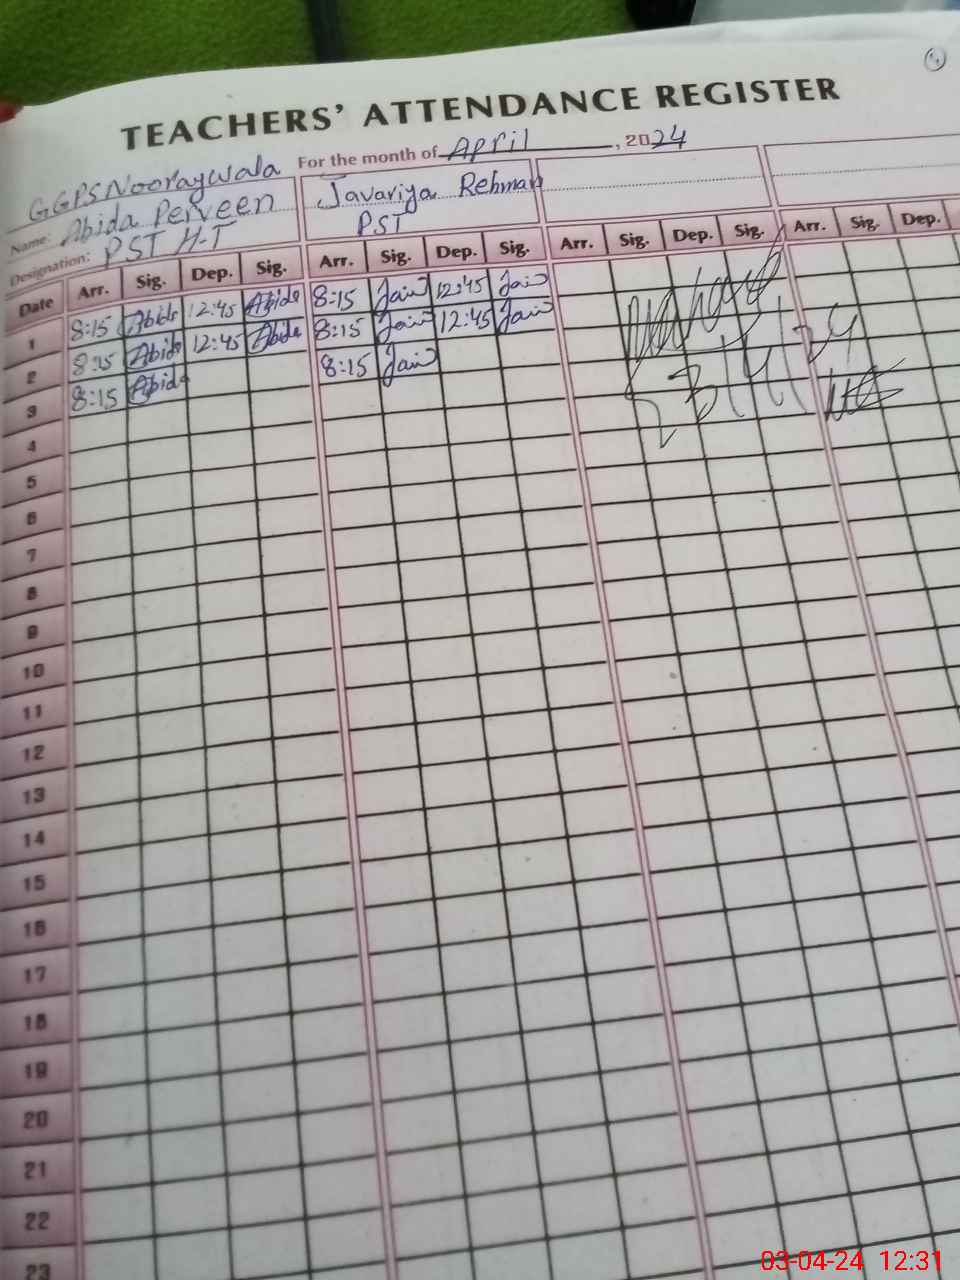 TEACHERS' ATTENDANCE REGISTER
For the month of April, 2024
GGPS Nooraywala
Name: Abida Perveen Javariya Rehman
Designation: PST H-T PST
Date Arr. Sig. Dep. Sig. Arr. Sig. Dep. Sig. Arr. Sig. Dep. Sig. Arr. Sig. Dep.
1 8:15 Abida 12:45 Abida 8:15 Jav 12:45 Jav
2 8:15 Abida 12:45 Abida 8:15 Jav 12:45 Jav
3 8:15 Abida 8:15 Jav
3/4/24
4
5
6
7
8
9
10
11
12
13
14
15
16
17
18
19
20
21
22
23
03-04-24 12:31